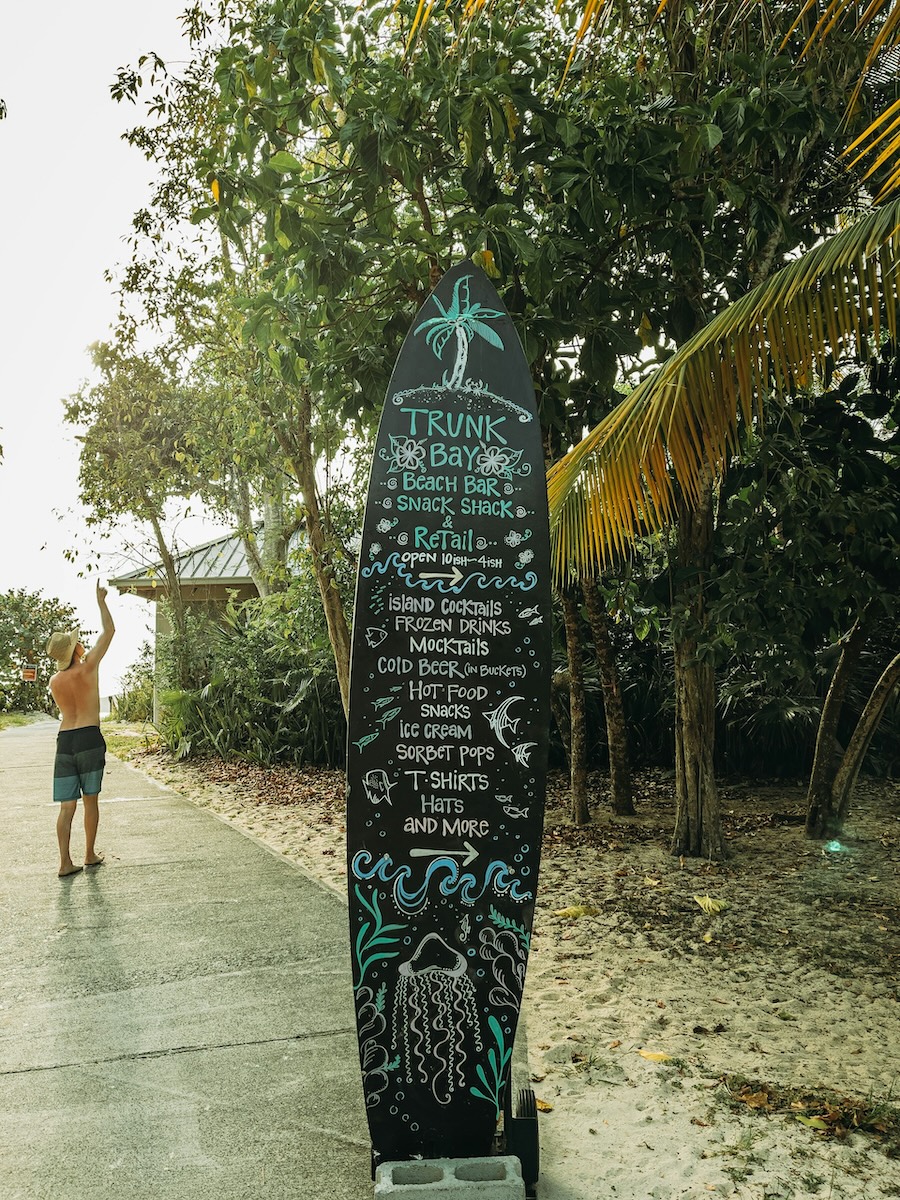 TRUNK
BAY
BEACH BAR
SNACK SHACK
&
RETAIL
OPEN 10ISH-4ISH
ISLAND COCKTAILS
FROZEN DRINKS
MOCKTAILS
COLD BEER (IN BUCKETS)
HOT FOOD
SNACKS
ICE CREAM
SORBET POPS
T-SHIRTS
HATS
AND MORE